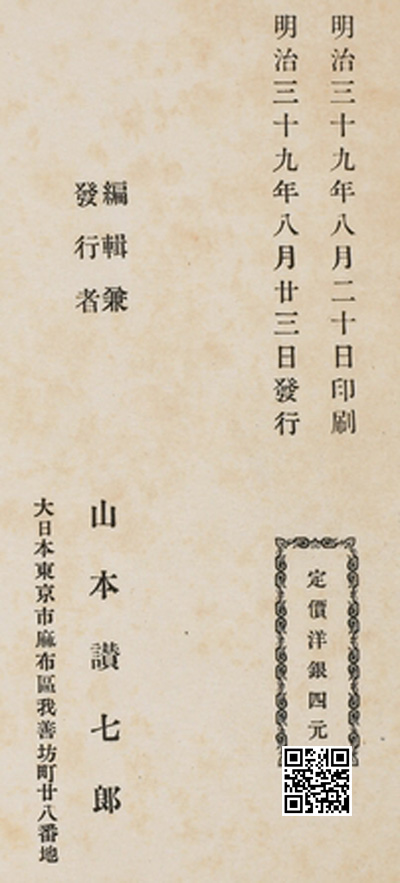 明治三十九年八月二十日印刷
明治三十九年八月廿三日發行
定價洋銀四元
編輯兼
發行者
山本讃七郎
大日本東京市麻布區我善坊町廿八番地